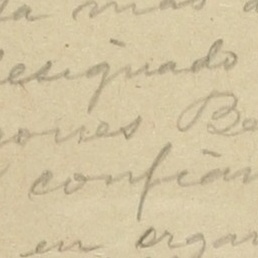 la mas a
designado
ones Be
confian
en organ